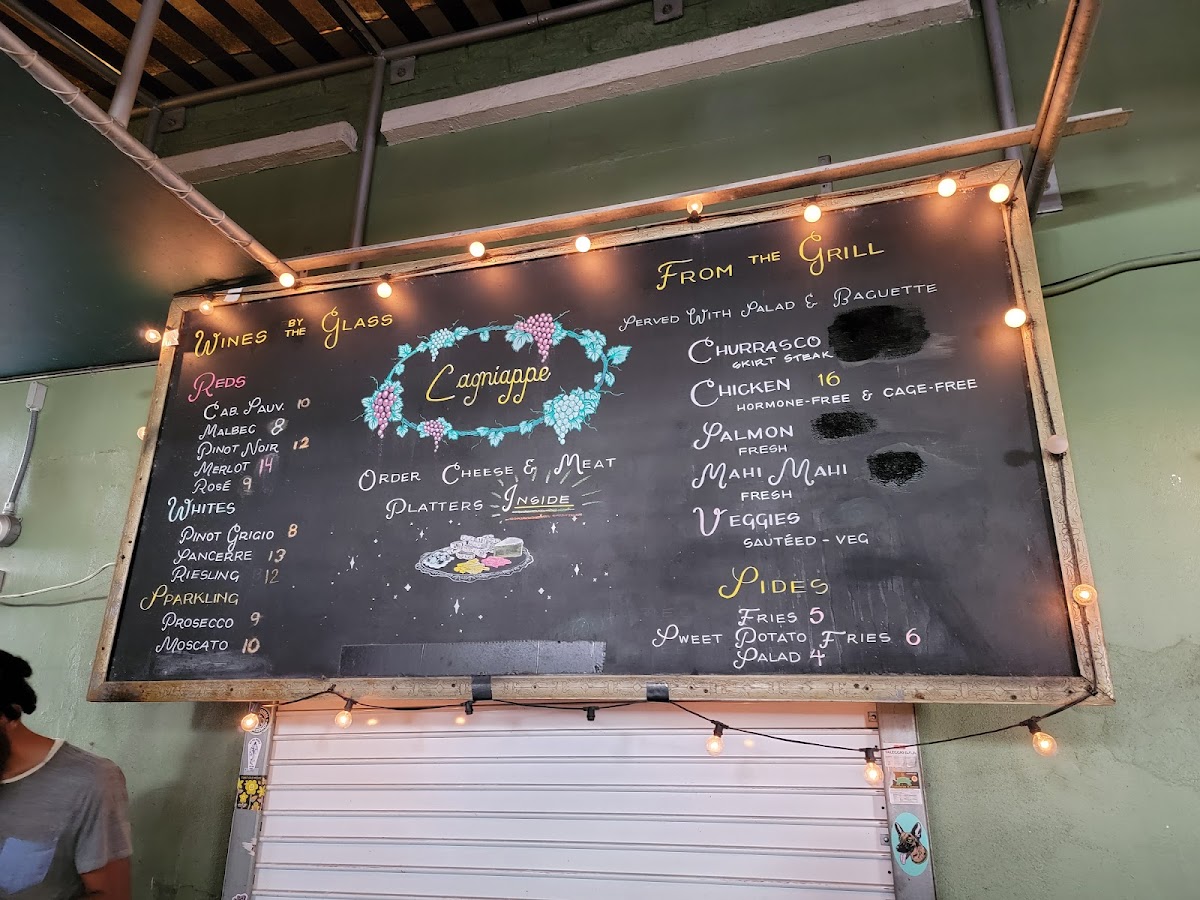 Wines by the Glass
Reds
Cab. Sauv. 10
Malbec 8
Pinot Noir 12
Merlot 14
Rosé 9
Whites
Pinot Grigio 8
Sancerre 13
Riesling 12
Sparkling
Prosecco 9
Moscato 10
Lagniappe
Order Cheese & Meat
Platters Inside
From the Grill
Served With Salad & Baguette
Churrasco
Skirt Steak
Chicken 16
Hormone-Free & Cage-Free
Salmon
Fresh
Mahi Mahi
Fresh
Veggies
Sautéed - Veg
Sides
Fries 5
Sweet Potato Fries 6
Salad 4